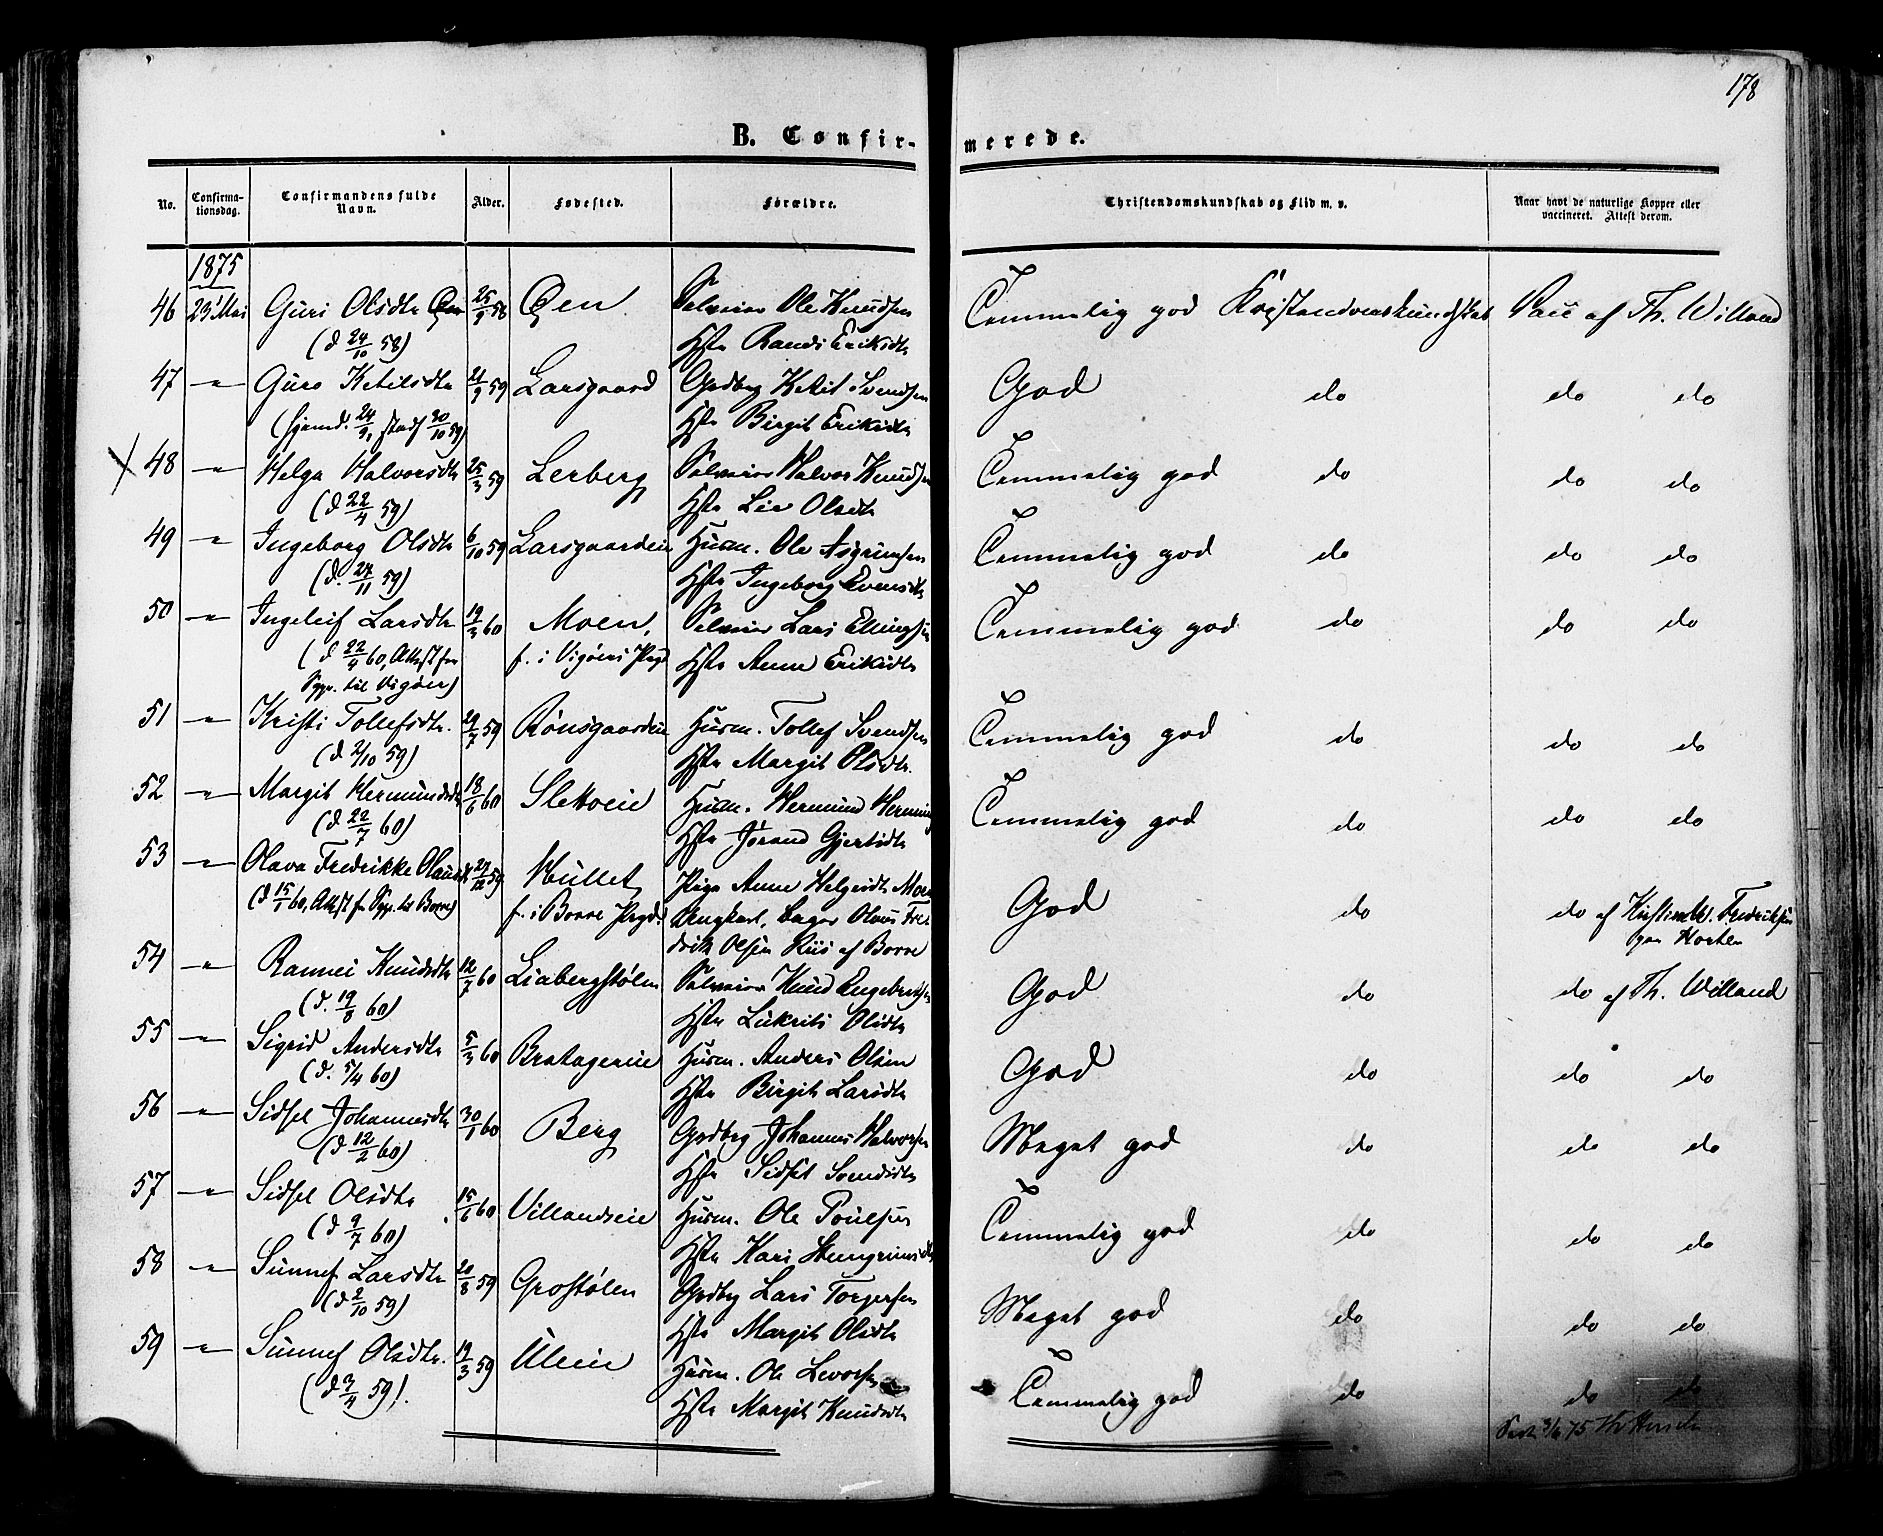 178
B. Confirmerede.
No. Confirmationsdag. Confirmandens fulde Navn. Alder. Fødested. Forældre. Christendomskundskab og Flid m. v. Naar havt de naturlige Kopper eller vaccineret. Attest derom.
1875
46 23' Mai Guri Olsdtr Øen 25/9 58 Øen. Selveier Ole Knudsen Temmelig god Kristendomskundskab Vacc af Th. Villand
(d 24/10 58) Hstr Randi Eriksdtr
47 -"- Guro Ketilsdtr 21/9 59 Larsgaard Gdbrg Ketil Svendsen God do do do
(hjemd. 24/9, stadf 30/10 59) Hstr Birgit Eriksdtr
48 -"- Helga Halvorsdtr 25/3 59 Lerberg Selveier Halvor Knudsen Temmelig god do do do
(d 22/4 59) Hstr Liv Olsdtr
49 -"- Ingeborg Olsdtr 6/10 59 Larsgaardeie Husm. Ole Asgrimsen Temmelig god do do do
(d. 27/11 59) Hstr Ingeborg Evensdtr
50 -"- Ingeleif Larsdtr 19/3 60 Moen, Selveier Lars Ellingsen Temmelig god do do do
(d 22/4 60, Attest fra f. i Vigøers Prgd Hstr Anne Eriksdtr
Sgpr. til Vigøer)
51 -"- Kristi Tollefsdtr. 29/7 59 Rønsgaardeie Husm. Tollef Svendsen Temmelig god do do do
(d 2/10 59) Hstr Margit Olsdtr.
52 -"- Margit Hermundsdtr 18/6 60 Slettoeie Husm. Hermund Temmelig god do do do
(d 22/7 60) Hstr Jørand Gjertsdtr
53 -"- Olava Fredrikke Olausdtr 27/12 59 Hullet Pige Anne Helgesdtr Moen God do do af Fredriksen
(d 15/1 60, Attest fr Sgp. til Borre) f. i Borre Prgd. Ungkarl, Bager Olaus Fre- paa Horten
drik Olsen Riis af Borre
54 -"- Rannei Knudsdtr 12/7 60 Liabergstølen Selveier Knud Engebretsen God do do af Th. Villand
(d. 19/8 60) Hstr Lukrits Olsdtr
55 -"- Sigrid Andersdtr 5/3 60 Bratagereie Husm. Anders Olsen God do do do
(d. 5/4 60) Hstr Birgit Larsdtr
56 -"- Sidsel Johannesdtr 30/1 60 Berg Gdbrg Johannes Halvorsen Meget god do do do
(d 12/2 60) Hstr Sidsel Svendsdtr
57 -"- Sidsel Olsdtr 15/6 60 Villandseie Husm. Ole Poulsen Temmelig god do do do
(d 9/7 60) Hstr Kari
58 -"- Sunnef Larsdtr 20/8 59 Grostølen Gdbrg Lars Torgersen Meget god do do do
(d 2/10 59) Hstr Margit Olsdtr
59 -"- Sunnef Olsdtr. 19/3 59 Uleie Husm. Ole Levorsen Temmelig god do do do
(d 3/4 59). Hstr Margit Knudsdtr